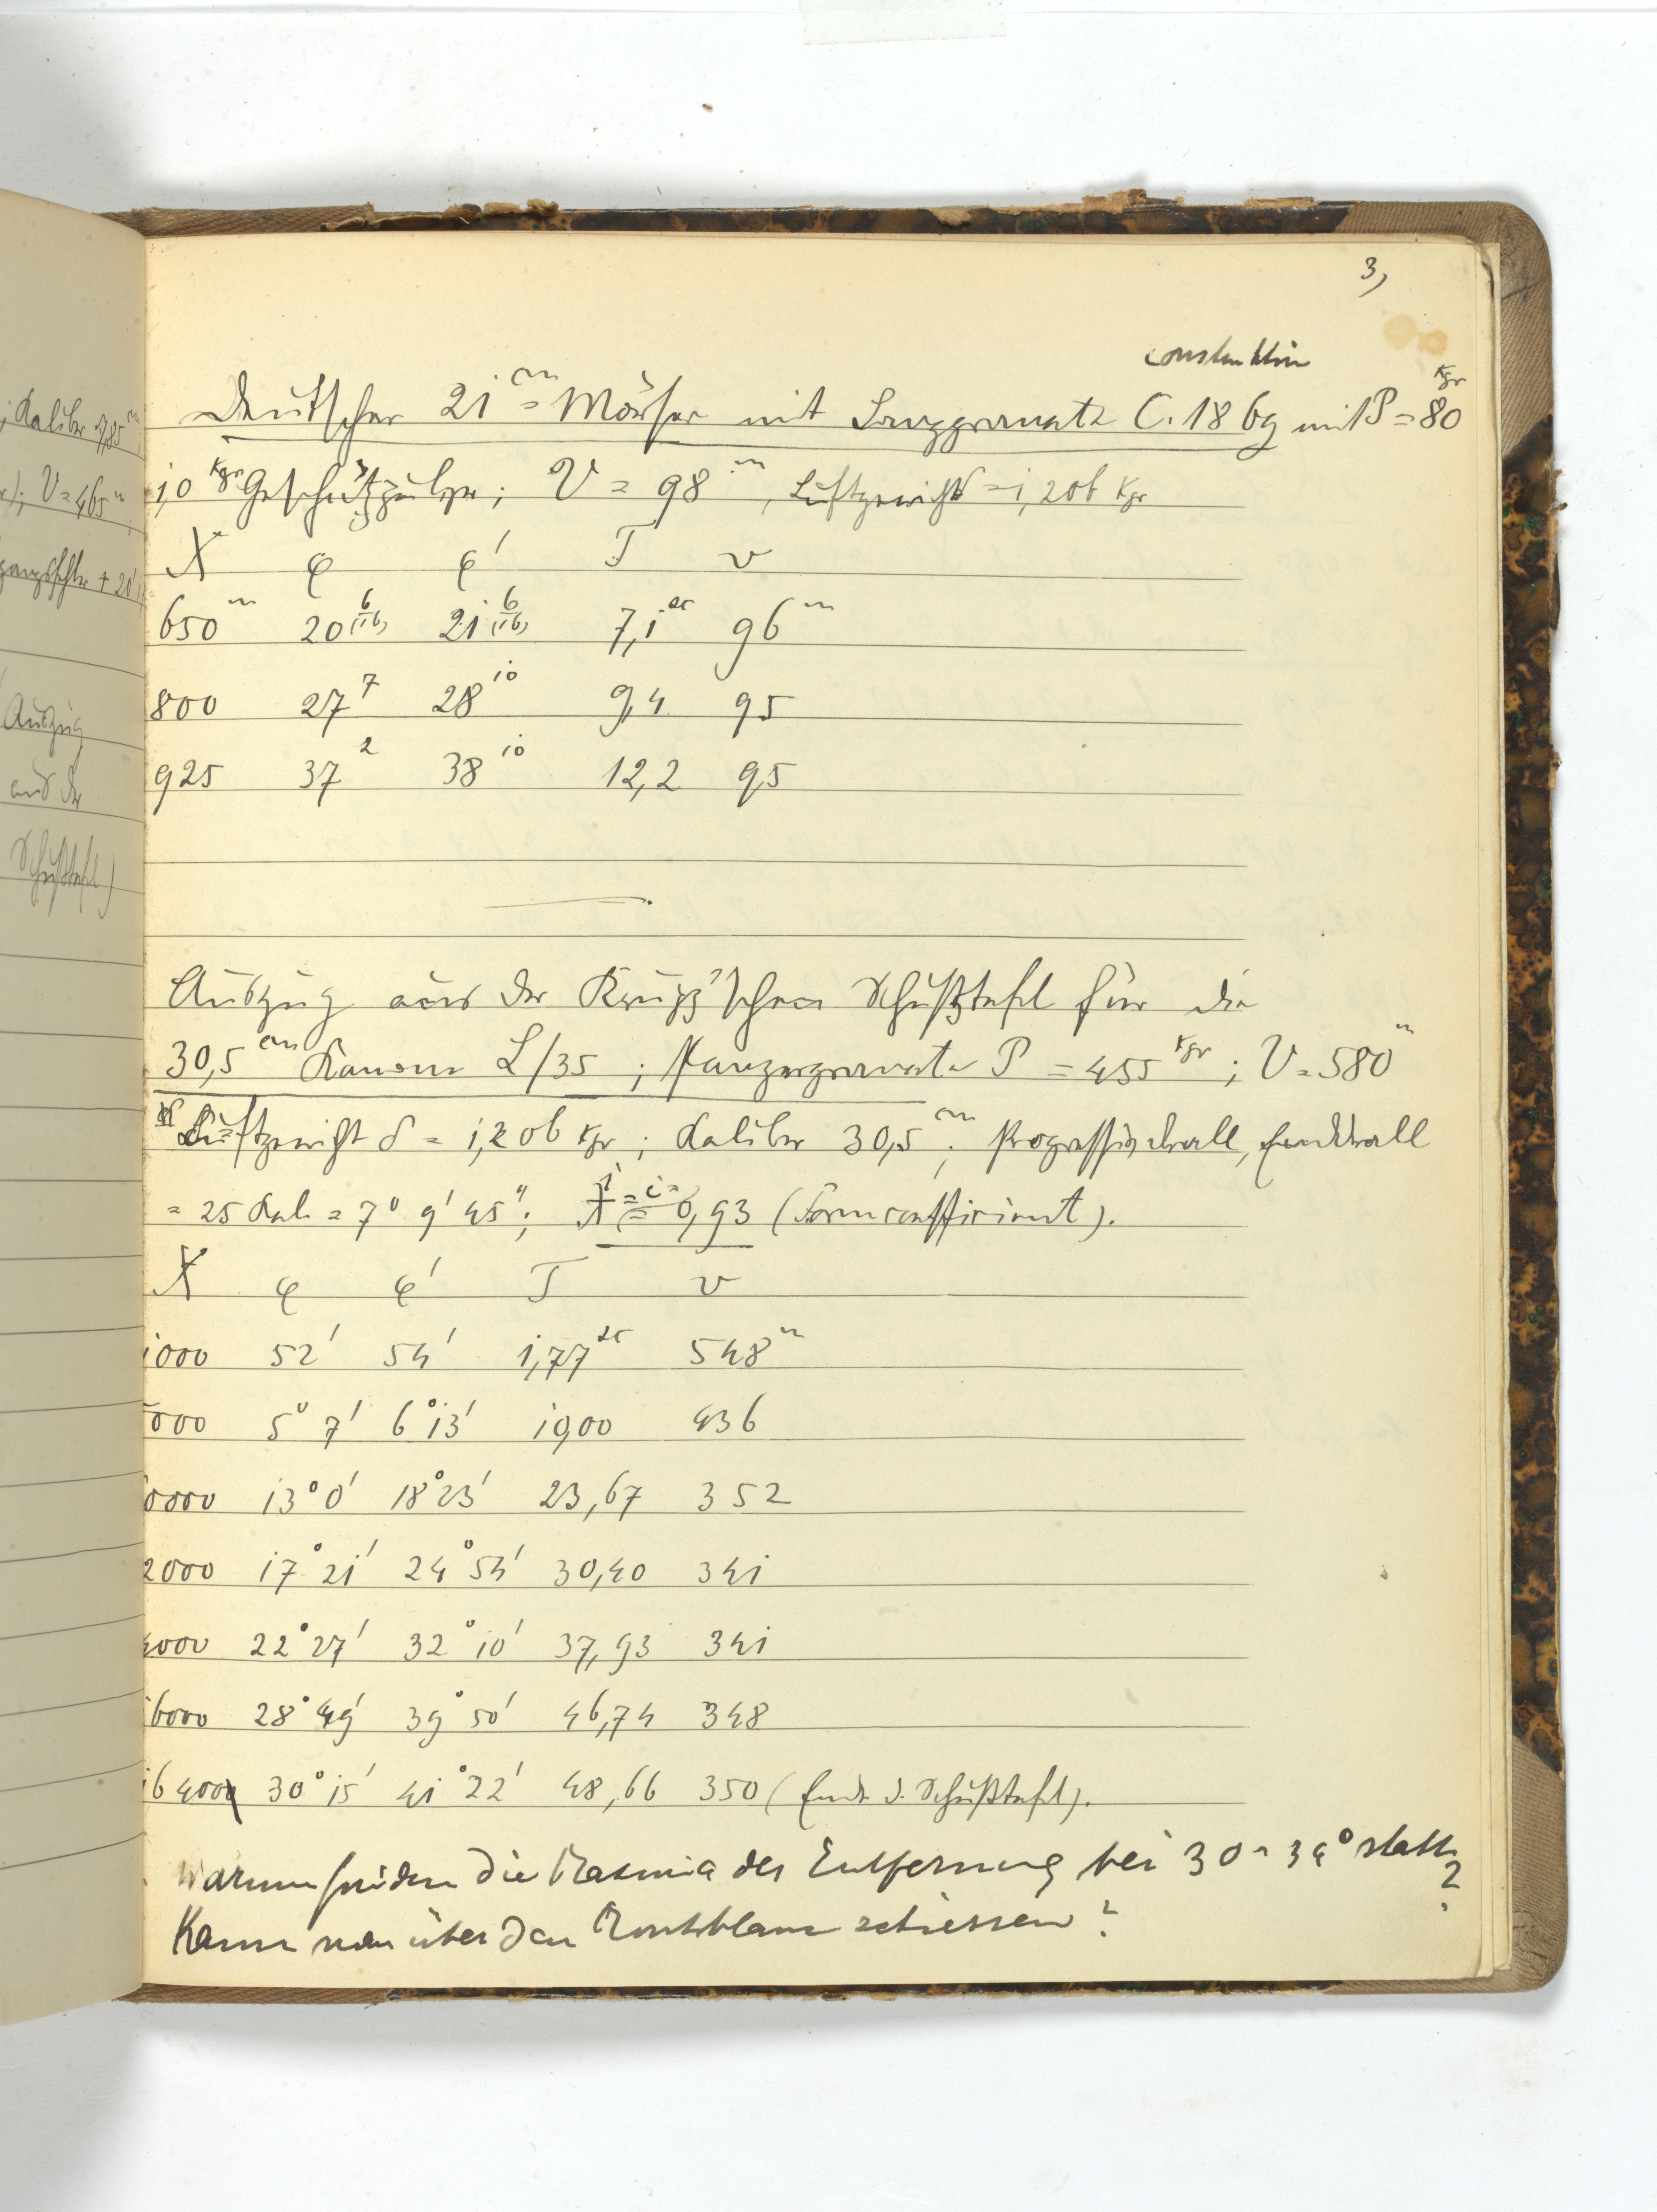 3,
Construktion
Kgr
Deutscher 21 cm = Mörser mit Langgranate C. 1869 mit P = 80
1,0 Kgr Geschützpulver; V = 98 m, Luftgewicht = 1,206 Kgr
X φ φ' T v
650 m 20 6/(16) 21 6/(16) 7,1 sec 96 m
800 27 7 28 10 9,4 95
925 37 2 38 10 12,2 95
Auszug aus der Krupp'schen Schußtafel für die
30,5 cm Kanone L/35; Panzergranate P = 455 Kgr; V = 580 m
Luftgewicht δ = 1,206 Kgr; Kaliber 30,5 cm; Progressivdrall, Enddrall
= 25 Kal. = 7° 9' 45"; = i = 0,93 (Formcoefficient).
X φ φ' T v
1000 52' 54' 1,77 sec 548 m
5000 5° 7' 6° 13' 10,00 436
0000 13° 0' 18° 23' 23,67 352
2000 17° 21' 24° 54' 30,40 341
4000 22° 27' 32° 10' 37,93 341
16000 28° 49' 39° 50' 46,74 348
16400 30° 15' 41° 22' 48,66 350 (Ende d. Schußtafel).
Warum finden die Maxima der Entfernung bei 30-34° statt?
Kann man über den Montblanc schiessen?
; Kaliber 7,85 cm
; V = 465 m
+ 20'
Auszug
aus der
Schußtafel)